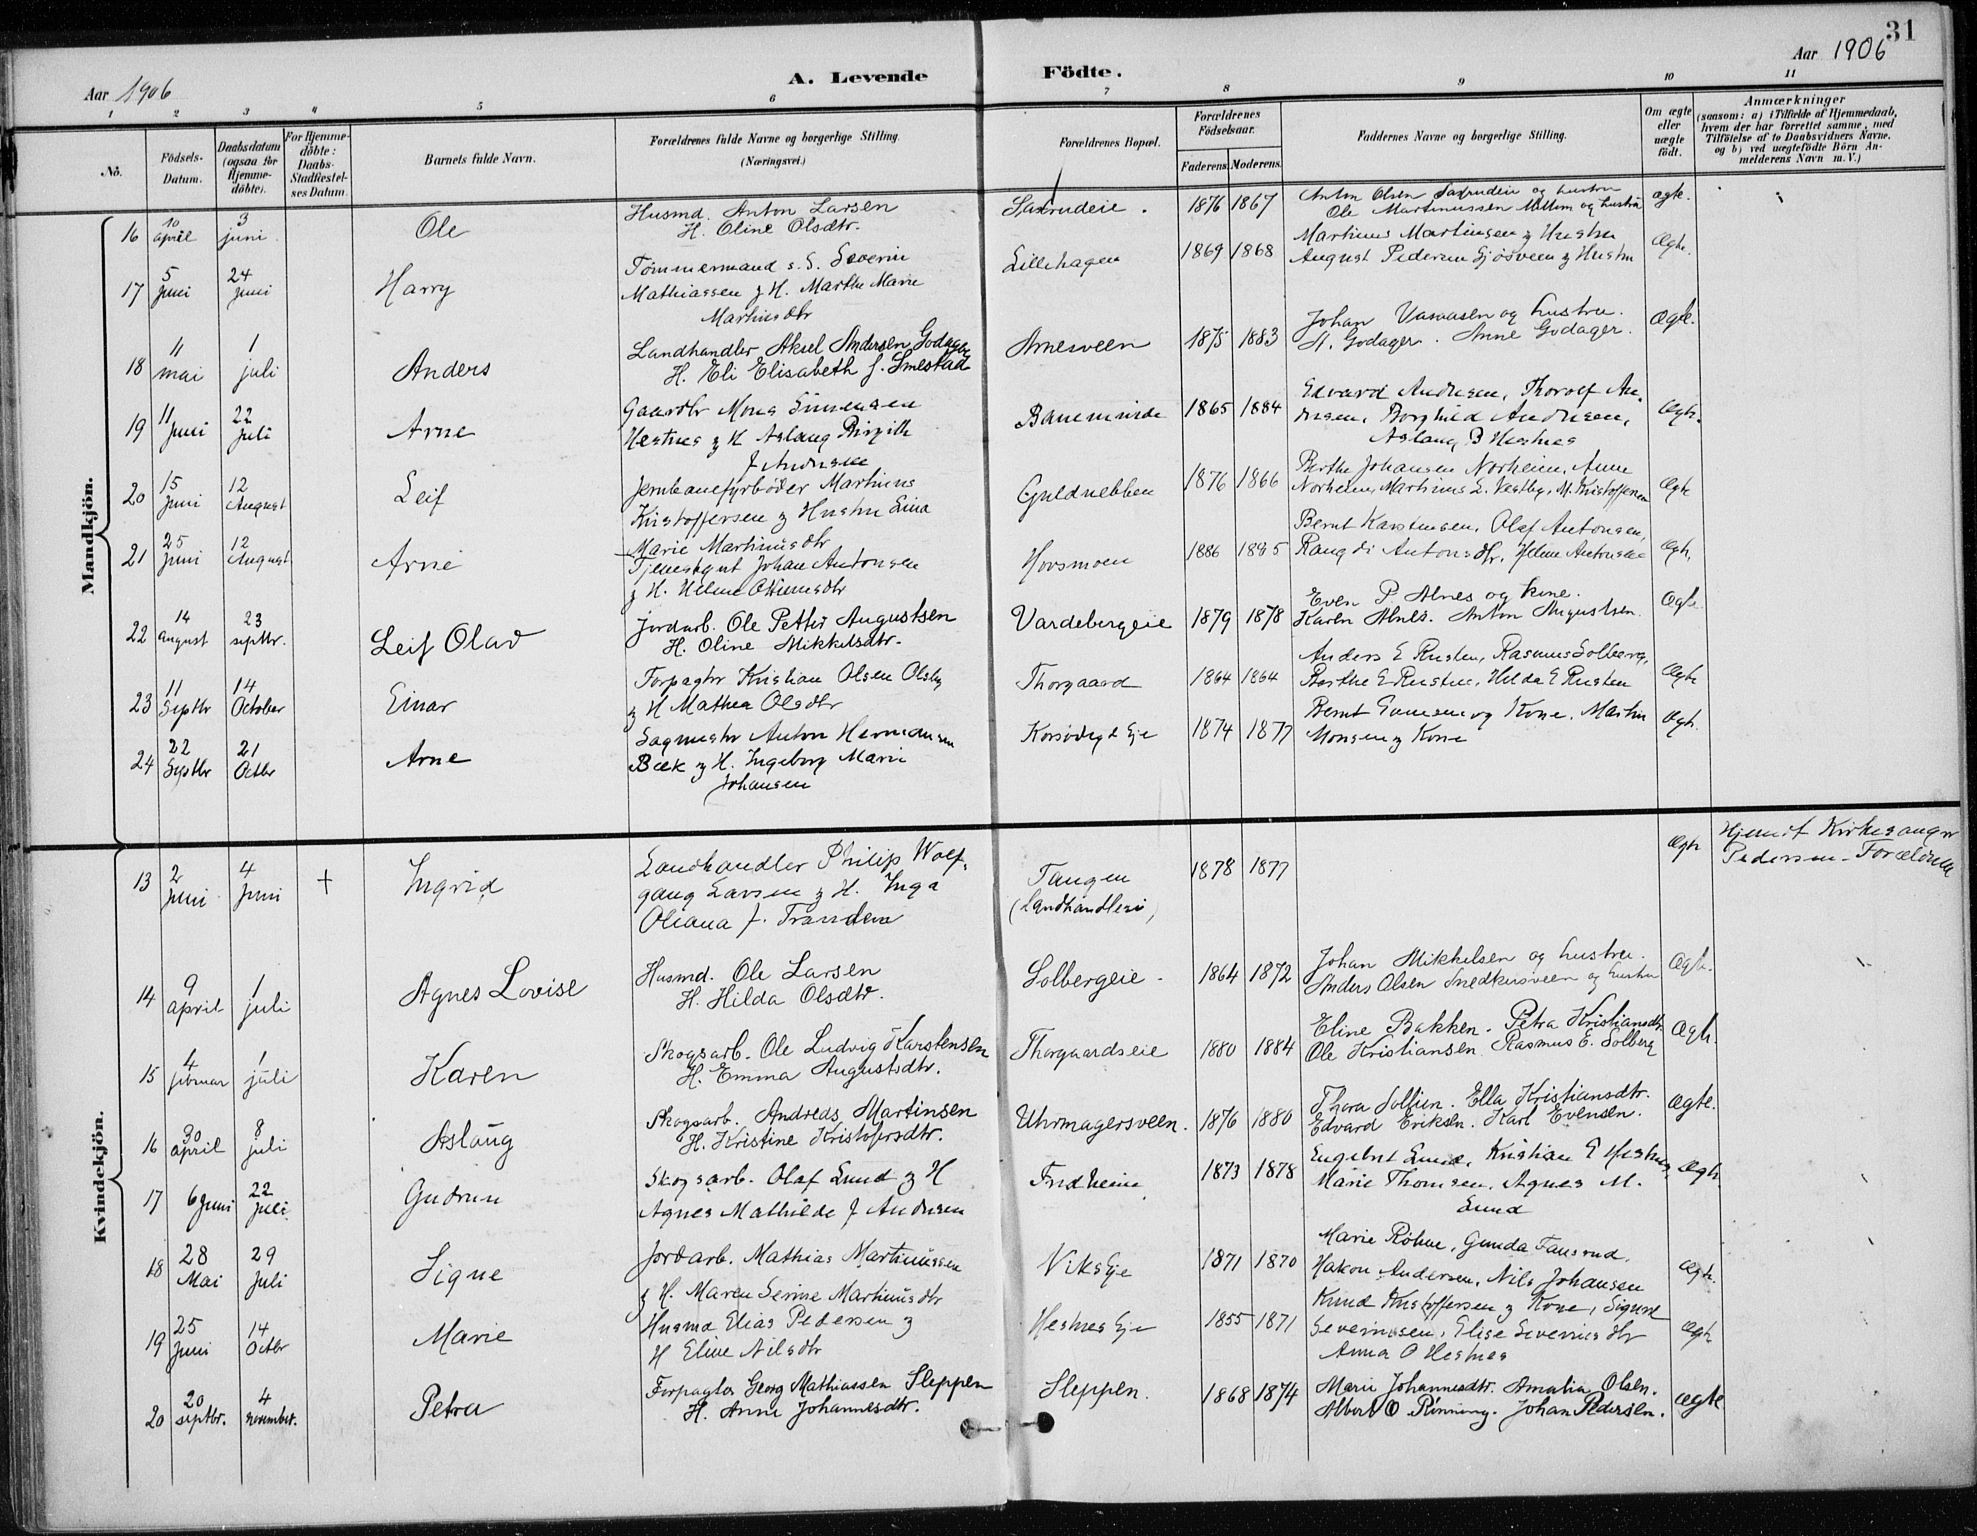 31
Aar 1906
A. Levende Födte.
Aar 1906
1 2 3 4 5 6 7 8 9 10 11
No.
Födsels-Datum.
Daabsdatum (ogsaa for Hjemme-döbte).
For Hjemme-döbte: Daabs-Stadfæstel-ses Datum.
Barnets fulde Navn.
Forældrenes fulde Navne og borgerlige Stilling. (Næringsvei.)
Forældrenes Bopæl.
Forældrenes Födselsaar.
Faderens. Moderens.
Faddernes Navne og borgerlige Stilling.
Om ægte eller uægte födt.
Anmærkninger
(saasom: a) i Tilfælde af Hjemmedaab,
hvem der har forrettet samme, med
Tilföielse af to Daabsvidners Navne.
og b) ved uægtefödte Börn An-
melderens Navn m. V.)
Mandkjön.
16 10 april 3 juni Ole
Husmd. Anton Larsen
H. Oline Olsdtr.
1876 1867
Anton Olsen og hustru
Ole Martinussen og hustru
ægte.
17 5 Juni 24 Juni Harry
Tömmermand s. S. Severin
Mathiassen & H. Marthe Marie
Martinsdtr
Lillehagen 1869 1868
Martinus Martinsen & Hustru
August Pedersen Sjøsveen & Hustru
Ægte.
18 11 mai 1 juli Anders
Landhandler Aksel Andersen Godager
H. Eli Elisabeth f. Smestad
Arnesveen 1875 1883
Johan og hustru.
A. Godager. Anne Godager.
Ægte.
19 11 Juni 22 Juli Arne
Gaardbr Mons Simensen
Hestnes & H Aslaug Birgitte
f Andresen
1865 1884
Edvard Andresen, Thorolf An-
dresen, Borghild Andresen,
Aslaug B Hestnes
Ægte.
20 15 Juni 12 August Leif
Jernbanefyrbøder Martinus
Kristoffersen & Hustru Lina
Marie Martinusdtr
Guldnebben 1876 1866
Berthe Johansen Norheim, Anne
Norheim, Martinus L. Vestby, M. Kristoffersen
Ægte
21 25 Juni 12 August Arne
Tjenestgut Johan Antonsen
& H. Helene Ottinusdtr
Hovsmoen 1886 1885
Bernt Karstensen, Olaf Antonsen,
Rangdi Antonsdtr, Helene Antonsen
Ægte.
22 14 august 23 septbr. Leif Olav
Jordarb. Ole Petter Augustsen
H. Oline Mikkelsdtr.
Vardebergeie 1879 1878
Even P Alnes og kone.
Karen Alnes. Anton Augustsen.
Ægte
23 11 Septbr 14 October Einar
Forpagter Kristian Olsen Olsby
& H Mathea Olsdtr
Thorgaard 1864 1864
Anders E Rusten, Rasmus Solberg,
Berthe E Rusten, Helda E Rusten
Ægte
24 22 Septbr 21 Octbr Arne
Sagmestr Anton Hermansen
Bæk & H. Ingeborg Marie
Johansen
Korsødegd Eje 1874 1877
Bernt og Kone, Martin
Monsen & Kone
Ægte.
Kvindekjön.
13 2 Juni 4 Juni † Ingrid
Landhandler Philip Wolf-
gang Larsen & H. Inga
Oliana f. Trandem
Tangen
(Landhandleri)
1878 1877
Ægte
Hjemdt Kirkesanger
Pedersen - Forældrene
14 9 april 1 juli Agnes Lovise
Husmd. Ole Larsen
H. Hilda Olsdtr.
Solbergeie - 1864 1872
Johan Mikkelsen og hustru.
Anders Olsen Snedkersveen og hustru
Ægte.
15 4 februar 1 juli Karen
Skogsarb. Ole Ludvig Karstensen
H. Emma Augustsdtr.
Thorgaardseie 1880 1884
Eline Bakken. Petra Kristiansdtr
Ole Kristiansen. Rasmus E. Solberg
Ægte.
16 30 april 8 juli Aslaug
Skogsarb. Andreas Martinsen
H. Kristine Kristofersdtr.
Uhrmagersveen. 1876 1880
Thora Sollien. Ella Kristiansdtr.
Edvard Eriksen. Karl Evensen.
Ægte.
17 6 Juni 22 Juli. Gudrun
Skogsarb. Olaf Lund & H
Agnes Mathilde f Andresen
Fredheim 1873 1878
Engebret Lund, Kristian E Hestnes,
Marie Thomsen. Agnes M.
Lund
Ægte.
18 28 Mai 29 Juli Signe
Jordarb. Mathias Martinussen
& H. Maren Serine Martinusdtr
Viks Eje 1871 1870
Marie Röhne, Gunda Fausrud,
Hakon Andersen, Nils Johansen
Ægte.
19 25 Juni 14 Octbr Marie
Husmd Elias Pedersen &
H Eline Nilsdtr
Hestnes Eje 1855 1871
Knud Kristoffersen & Kone, Sigurd
Severinssen, Elise Severinsdtr
Anna O Hestnes
Ægte
20 20 septbr. 4 november. Petra
Forpagter Georg Mathiassen Sleppen
H. Anne Johannesdtr.
Sleppen. 1868 1874
Marie Johannesdtr. Amalia Olsen.
Albert O Rönning. Johan Pedersen.
Ægte